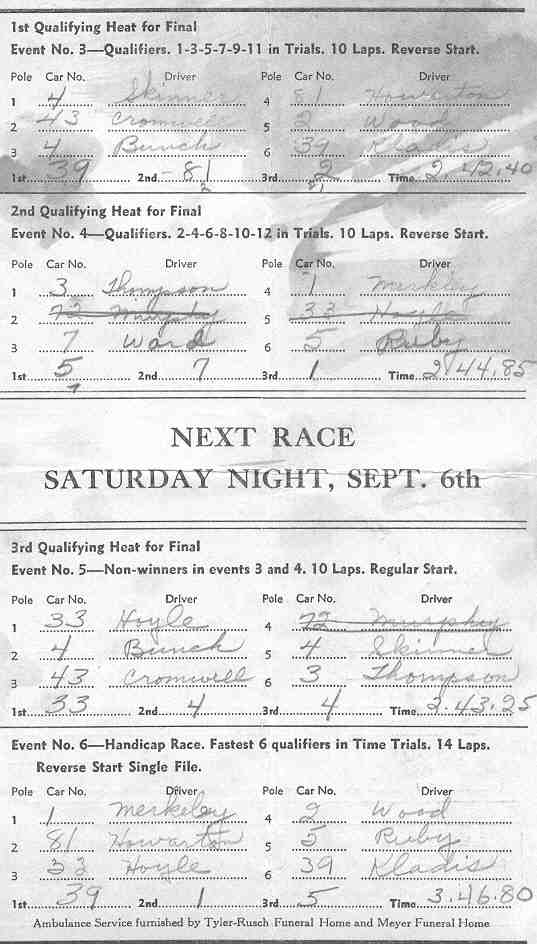 1st Qualifying Heat for Final
Event No. 3—Qualifiers. 1-3-5-7-9-11 in Trials. 10 Laps. Reverse Start.
Pole Car No. Driver Pole Car No. Driver
1 4 Skinner 4 81 Howarton
2 43 Cromwell 5 2 Wood
3 4 Bunch 6 39 Kladis
1st 39 2nd 81 3rd 2 Time 2.42.40
2nd Qualifying Heat for Final
Event No. 4—Qualifiers. 2-4-6-8-10-12 in Trials. 10 Laps. Reverse Start.
Pole Car No. Driver Pole Car No. Driver
1 3 Thompson 4 1 Merkeley
2 72 Murphy 5 33 Hoyle
3 7 Ward 6 5 Ruby
1st 5 2nd 7 3rd 1 Time 2.44.85
NEXT RACE
SATURDAY NIGHT, SEPT. 6th
3rd Qualifying Heat for Final
Event No. 5—Non-winners in events 3 and 4. 10 Laps. Regular Start.
Pole Car No. Driver Pole Car No. Driver
1 33 Hoyle 4 72 Murphy
2 4 Bunch 5 4 Skinner
3 43 Cromwell 6 3 Thompson
1st 33 2nd 4 3rd 4 Time 2.43.25
Event No. 6—Handicap Race. Fastest 6 qualifiers in Time Trials. 14 Laps.
Reverse Start Single File.
Pole Car No. Driver Pole Car No. Driver
1 1 Merkeley 4 2 Wood
2 81 Howarton 5 5 Ruby
3 33 Hoyle 6 39 Kladis
1st 39 2nd 1 3rd 5 Time 3.46.80
Ambulance Service furnished by Tyler-Rusch Funeral Home and Meyer Funeral Home